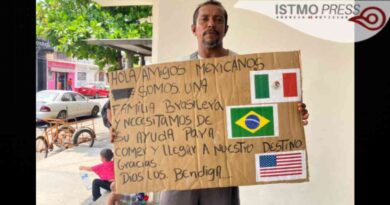 ISTMO PRESS
AGENCIA DE NOTICIAS
¡HOLA! AMIGOS MEXICANOS
SOMOS UNA
FAMILIA BRASILEÑA
Y NECESITAMOS DE
SU AYUDA PARA
COMER Y LLEGAR A NUESTRO DESTINO
Gracias
DIOS LOS BENDIGA